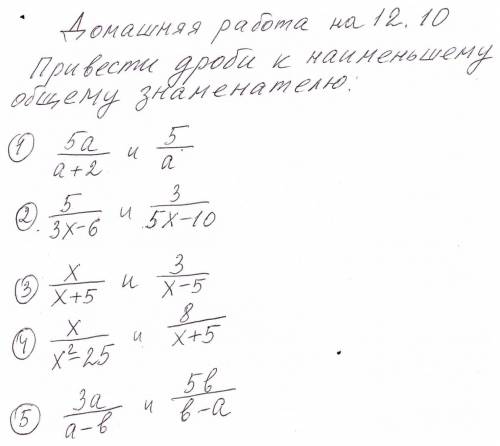 Домашняя работа на 12.10
Привести дроби к наименьшему
общему знаменателю:
① 5a/(a+2) и 5/a
② 5/(3x-6) и 3/(5x-10)
③ x/(x+5) и 3/(x-5)
④ x/(x²-25) и 8/(x+5)
⑤ 3a/(a-b) и 5b/(b-a)